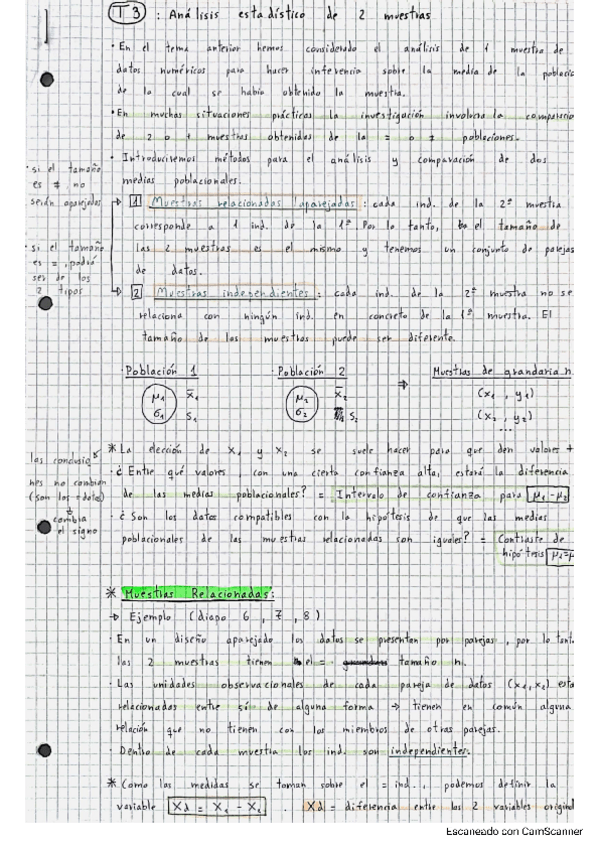 T3 : Análisis estadístico de 2 muestras
· En el tema anterior hemos considerado el análisis de 1 muestra de
datos numéricos para hacer inferencia sobre la media de la poblacio
de la cual se había obtenido la muestra.
· En muchas situaciones prácticas la investigación involucra la comparacio
de 2 o + muestras obtenidas de la = o ≠ poblaciones.
· Introduciremos métodos para el análisis y comparación de dos
medias poblacionales.
· si el tamaño
es ≠, no
serán aparejadas
→ 1 Muestras relacionadas (aparejadas): cada ind. de la 2ª muestra
corresponde a 1 ind. de la 1ª. Por lo tanto, el tamaño de
las 2 muestras es el mismo y tenemos un conjunto de parejas
de datos.
· si el tamaño
es =, podrá
ser de los
2 tipos
→ 2 Muestras independientes: cada ind. de la 2ª muestra no se
relaciona con ningún ind. en concreto de la 1ª muestra. El
tamaño de las muestras puede ser diferente.
· Población 1 · Población 2 Muestras de grandaria n
μ1 x̄1 μ2 x̄2 ⇒ (x1, y1)
σ1 s1 σ2 s2 (x2, y2)
...
* La elección de x1 y x2 se suele hacer para que den valores +
las conclusio
nes no cambian
(son los = datos)
↓
cambia
el signo
· ¿Entre qué valores, con una cierta confianza alta, estará la diferencia
de las medias poblacionales? = Intervalo de confianza para μ1-μ2
· ¿Son los datos compatibles con la hipótesis de que las medias
poblacionales de las muestras relacionadas son iguales? = Contraste de
hipótesis μ1=μ
* Muestras Relacionadas:
→ Ejemplo (diapo 6, 7, 8)
· En un diseño aparejado los datos se presentan por parejas, por lo tant
las 2 muestras tienen el = tamaño n.
· Las unidades observacionales de cada pareja de datos (x1, x2) esta
relacionadas entre sí de alguna forma → tienen en común alguna
relación que no tienen con los miembros de otras parejas.
· Dentro de cada muestra los ind. son independientes.
* Como las medidas se toman sobre el = ind., podemos definir la
variable Xd = X1 - X2 . Xd = diferencia entre las 2 variables original
Escaneado con CamScanner